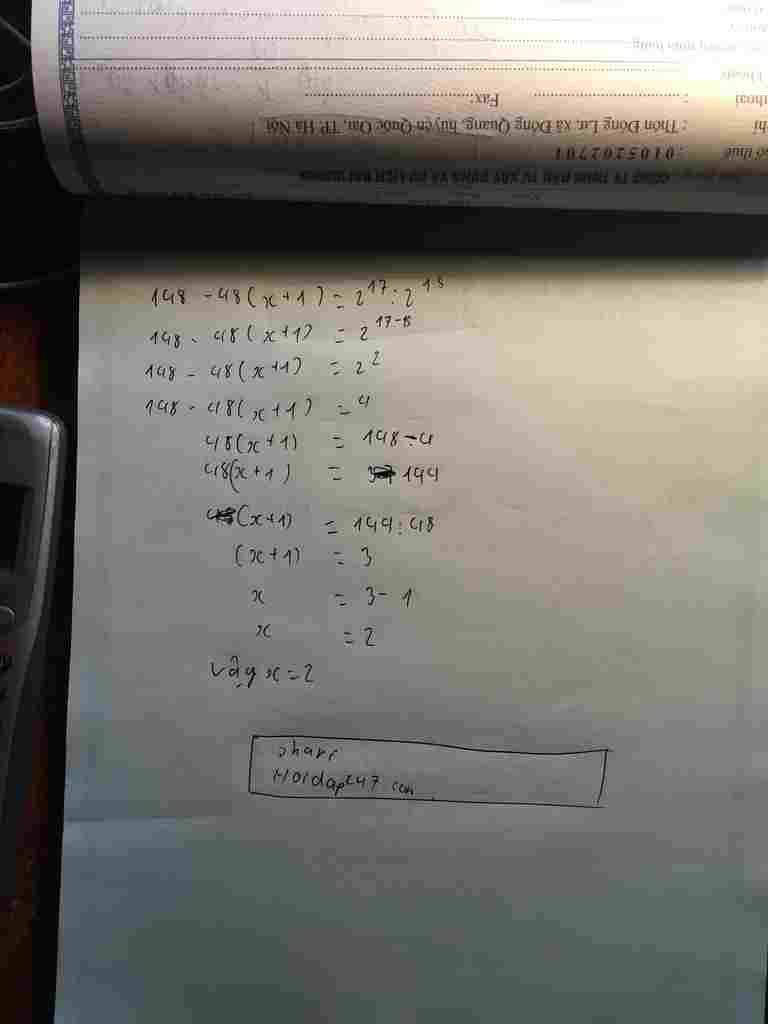 Fax:
: Thôn Đồng Lư, xã Đồng Quang, huyện Quốc Oai, TP. Hà Nội
số thuế : 0105202701
148 - 48(x+1) = 2^17 : 2^15
148 - 48(x+1) = 2^17-15
148 - 48(x+1) = 2^2
148 - 48(x+1) = 4
48(x+1) = 148-4
48(x+1) = 144
(x+1) = 144:48
(x+1) = 3
x = 3-1
x = 2
vậy x=2
share
Hoidap247 com